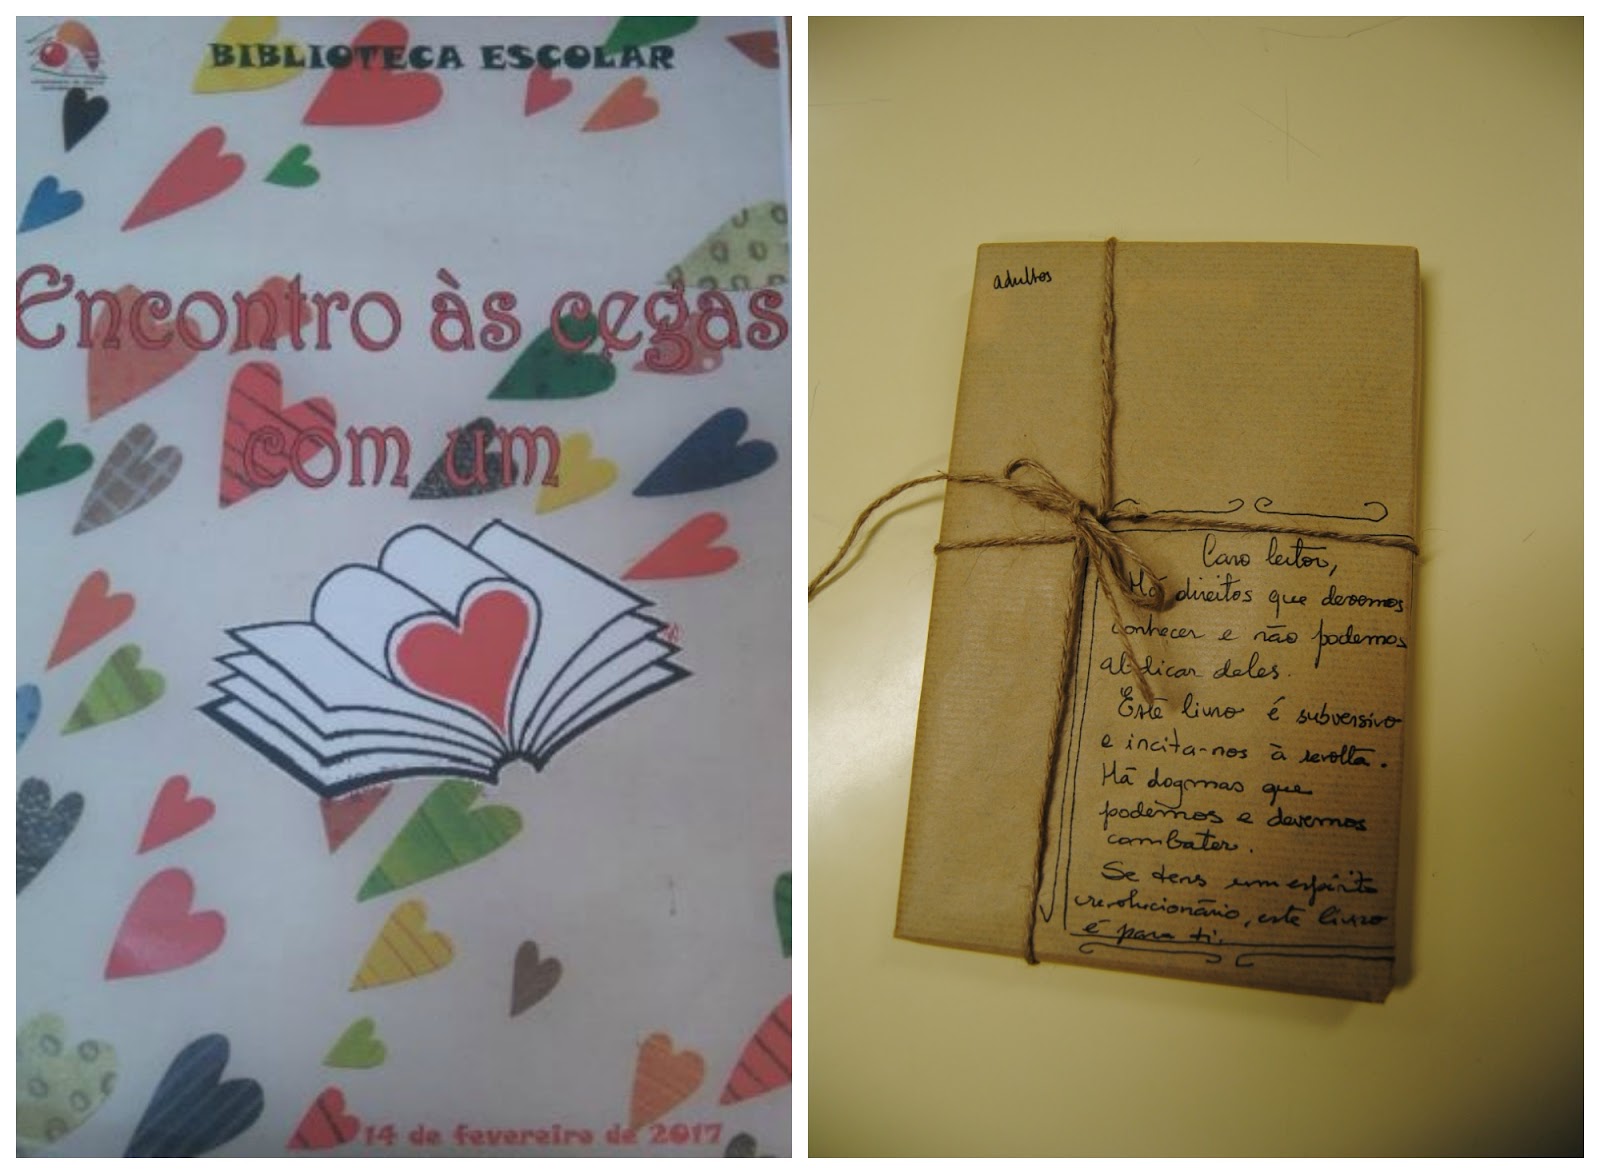 BIBLIOTECA ESCOLAR
Encontro às cegas
com um
14 de fevereiro de 2017
adultos
Caro leitor,
Há direitos que devemos
conhecer e não podemos
abdicar deles.
Este livro é subversivo
e incita-nos à revolta.
Há dogmas que
podemos e devemos
combater.
Se tens um espírito
revolucionário, este livro
é para ti.